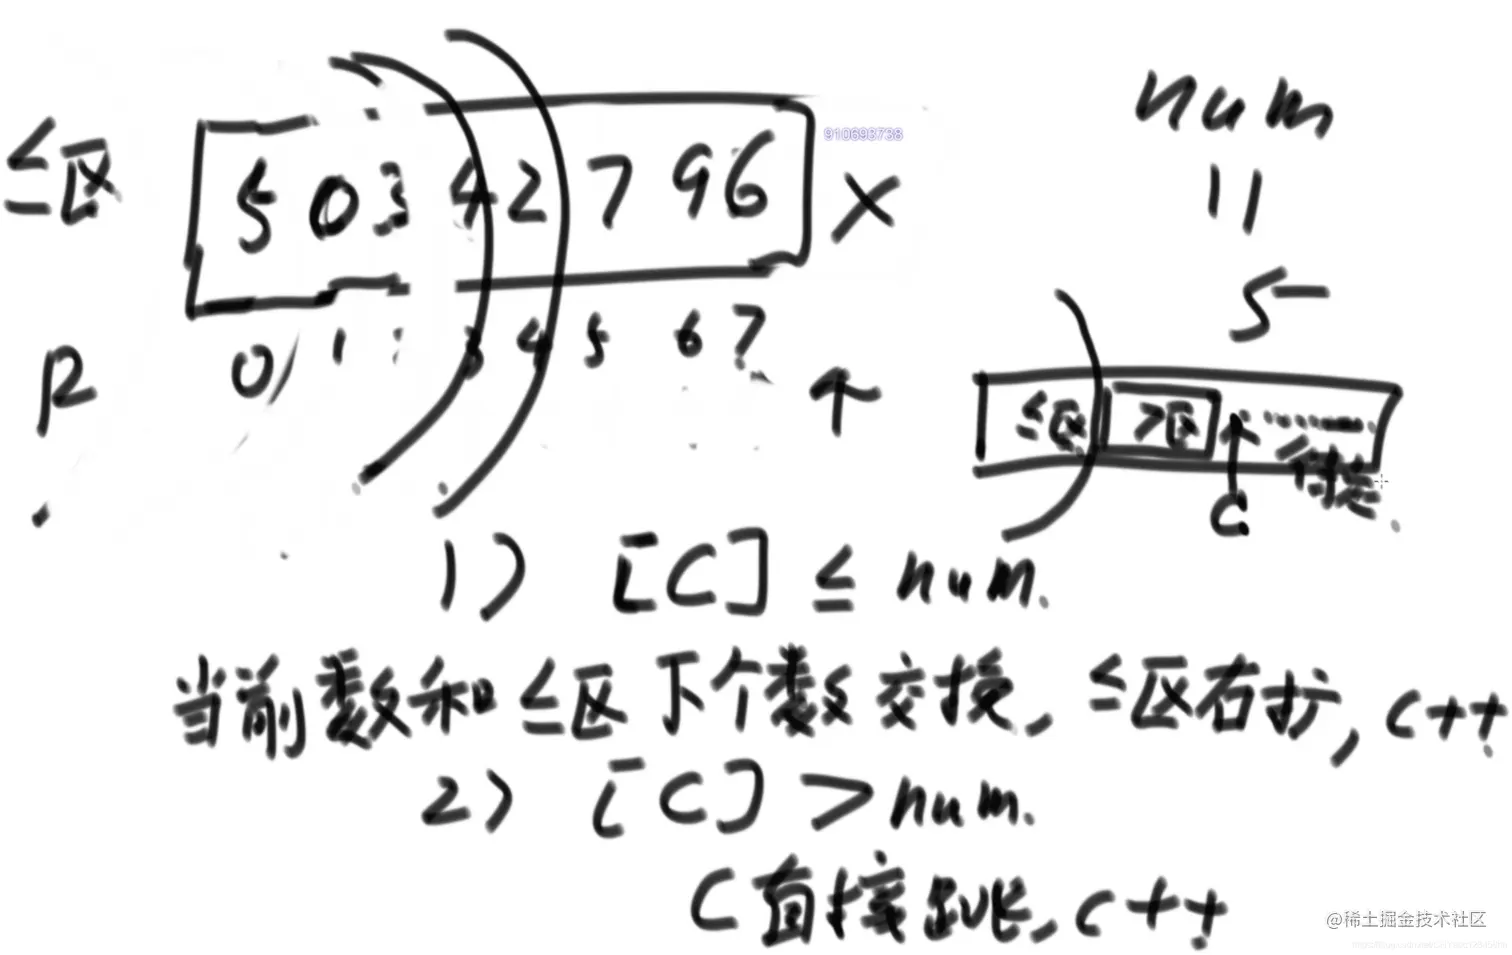 num
≤区
5 0 3 4 2 7 9 6
910693738
X
11
5
0 1 3 4 5 6 7
≤区 >区
C
待定
1) [C] ≤ num.
当前数和≤区下个数交换, ≤区右扩, C++
2) [C] > num.
C直接跳, C++
@稀土掘金技术社区